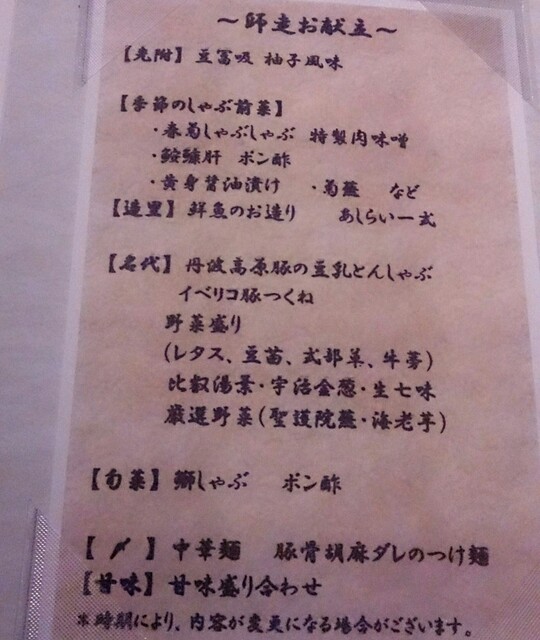 ～師走お献立～
【先附】 豆冨吸 柚子風味
【季節のしゃぶ前菜】
・春菊しゃぶしゃぶ 特製肉味噌
・鮟鱇肝 ポン酢
・黄身醤油漬け ・菊蕪 など
【造里】 鮮魚のお造り あしらい一式
【名代】 丹波高原豚の豆乳とんしゃぶ
イベリコ豚つくね
野菜盛り
(レタス、豆苗、式部草、牛蒡)
比叡湯葉・宇治金葱・生七味
厳選野菜(聖護院蕪・海老芋)
【旬菜】 鰤しゃぶ ポン酢
【〆】 中華麺 豚骨胡麻ダレのつけ麺
【甘味】 甘味盛り合わせ
※時期により、内容が変更になる場合がございます。